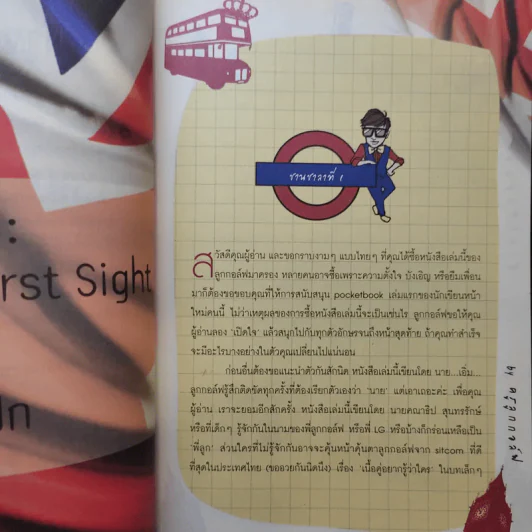 :
rst Sight
ชานชาลาที่ 1
สวัสดีคุณผู้อ่าน และขอกราบงามๆ แบบไทยๆ ที่คุณได้ซื้อหนังสือเล่มนี้ของ
ลูกกอล์ฟมาครอง หลายคนอาจซื้อเพราะความตั้งใจ บังเอิญ หรือยืมเพื่อน
มาก็ต้องขอขอบคุณที่ให้การสนับสนุน pocketbook เล่มแรกของนักเขียนหน้า
ใหม่คนนี้ ไม่ว่าเหตุผลของการซื้อหนังสือเล่มนี้จะเป็นเช่นไร ลูกกอล์ฟขอให้คุณ
ผู้อ่านลอง 'เปิดใจ' แล้วสนุกไปกับทุกตัวอักษรจนถึงหน้าสุดท้าย ถ้าคุณทำสำเร็จ
จะมีอะไรบางอย่างในตัวคุณเปลี่ยนไปแน่นอน
ก่อนอื่นต้องขอแนะนำตัวกันสักนิด หนังสือเล่มนี้เขียนโดย นาย...เอิ่ม...
ลูกกอล์ฟรู้สึกติดขัดทุกครั้งที่ต้องเรียกตัวเองว่า 'นาย' แต่เอาเถอะค่ะ เพื่อคุณ
ผู้อ่าน เราจะยอมอีกสักครั้ง หนังสือเล่มนี้เขียนโดย นายคณาธิป สุนทรรักษ์
หรือที่เด็กๆ รู้จักกันในนามของพี่ลูกกอล์ฟ หรือพี่ LG หรือบ้างก็กร่อนเหลือเป็น
'พี่ลูก' ส่วนใครที่ไม่รู้จักกันอาจจะคุ้นหน้าคุ้นตาลูกกอล์ฟจาก sitcom ที่ดี
ที่สุดในประเทศไทย (ขออวยกันนิดนึง) เรื่อง 'เนื้อคู่อยากรู้ว่าใคร' ในบทเล็กๆ
by ครูลูกกอล์ฟ